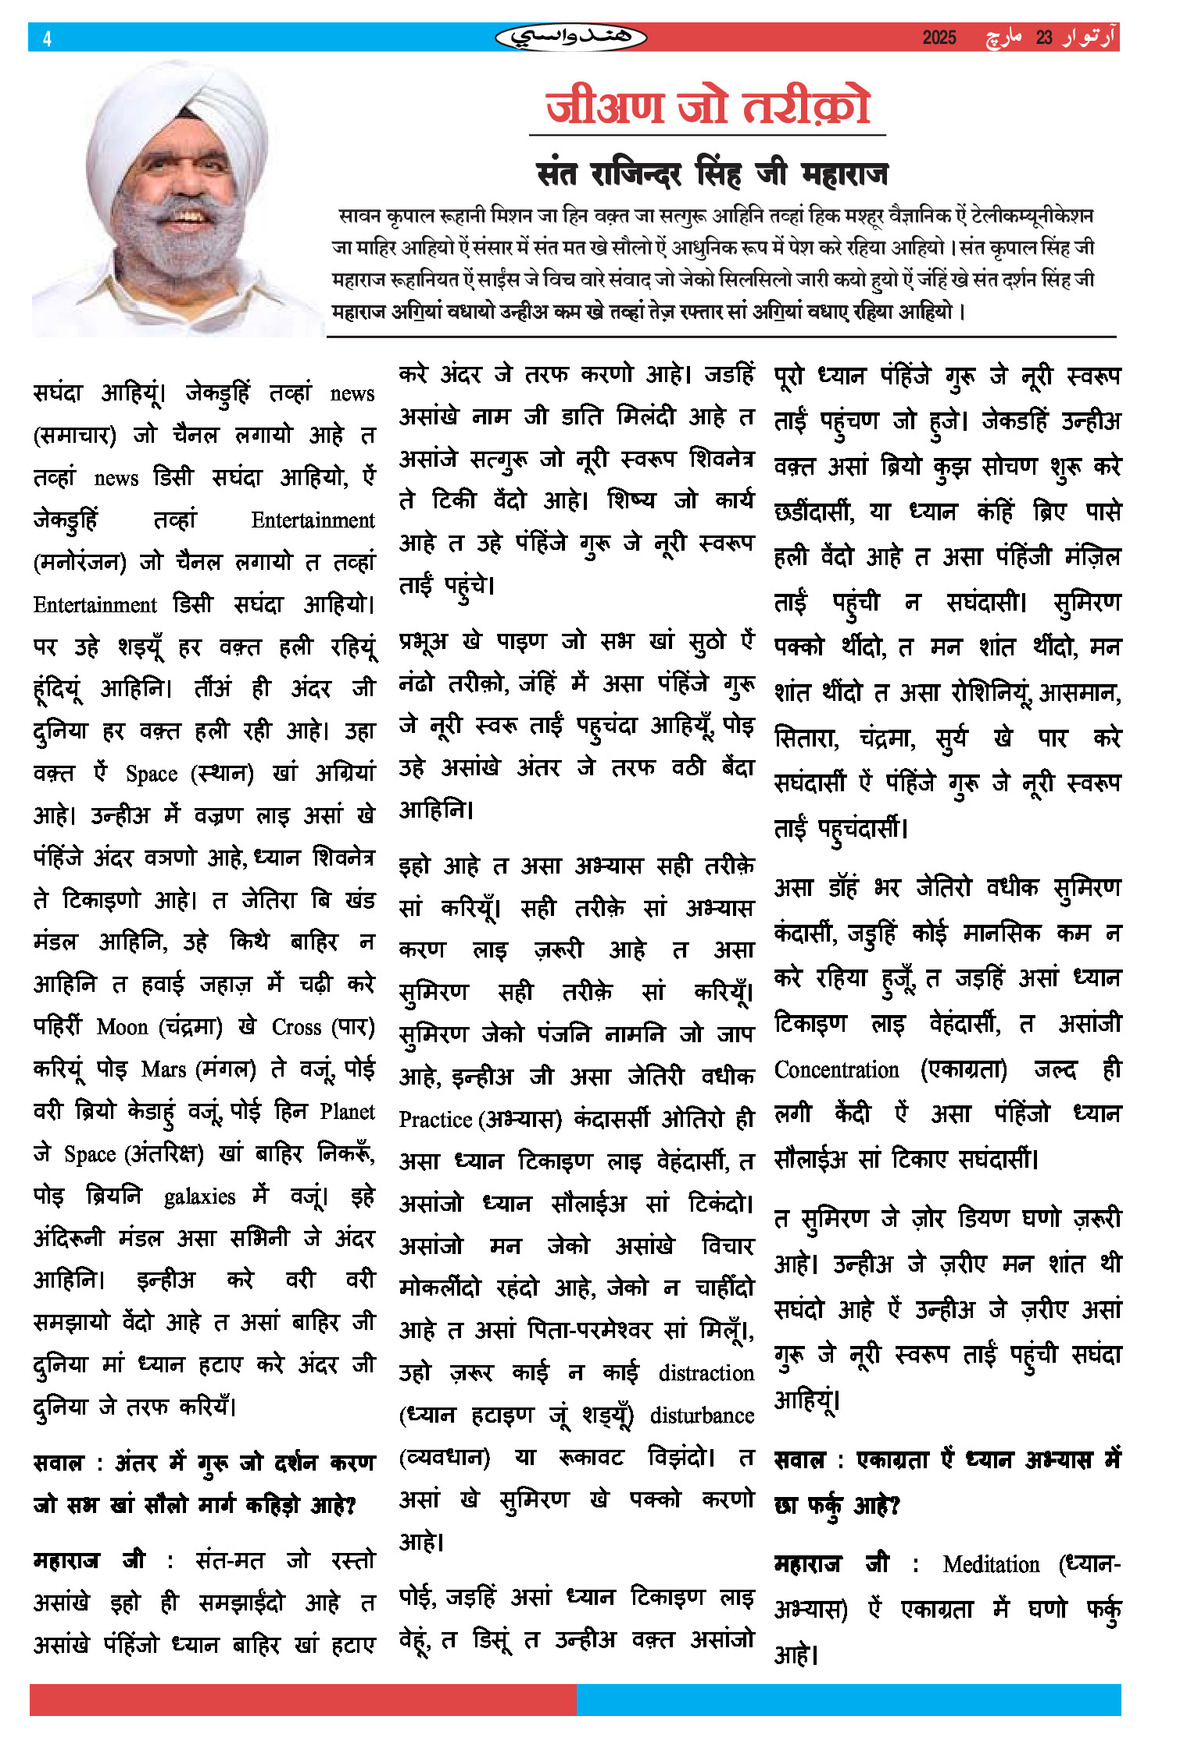 4
هندواسي
آرتوار 23 مارچ 2025
जीअण जो तरीक़ो
संत राजिन्दर सिंह जी महाराज
सावन कृपाल रूहानी मिशन जा हिन वक़्त जा सत्गुरू आहिनि तव्हां हिक मश्हूर वैज्ञानिक ऐं टेलीकम्यूनीकेशन
जा माहिर आहियो ऐं संसार में संत मत खे सौलो ऐं आधुनिक रूप में पेश करे रहिया आहियो । संत कृपाल सिंह जी
महाराज रूहानियत ऐं साईंस जे विच वारे संवाद जो जेको सिलसिलो जारी कयो हुयो ऐं जंहिं खे संत दर्शन सिंह जी
महाराज अग॒ियां वधायो उन्हीअ कम खे तव्हां तेज़ रफ्तार सां अग॒ियां वधाए रहिया आहियो ।
सघंदा आहियूं। जेकड॒हिं तव्हां news
(समाचार) जो चैनल लगायो आहे त
तव्हां news डिसी सघंदा आहियो, ऐं
जेकड॒हिं तव्हां Entertainment
(मनोरंजन) जो चैनल लगायो त तव्हां
Entertainment डिसी सघंदा आहियो।
पर उहे शइयूँ हर वक़्त हली रहियूं
हूंदियूं आहिनि। तींअं ही अंदर जी
दुनिया हर वक़्त हली रही आहे। उहा
वक़्त ऐं Space (स्थान) खां अग॒ियां
आहे। उन्हीअ में वञ॒ण लाइ असां खे
पंहिंजे अंदर वञणो आहे, ध्यान शिवनेत्र
ते टिकाइणो आहे। त जेतिरा बि खंड
मंडल आहिनि, उहे किथे बाहिर न
आहिनि त हवाई जहाज़ में चढ़ी करे
पहिरीं Moon (चंद्रमा) खे Cross (पार)
करियूं पोइ Mars (मंगल) ते वजूं, पोई
वरी ब॒ियो केडाहुं वजूं, पोई हिन Planet
जे Space (अंतरिक्ष) खां बाहिर निकरूँ,
पोइ ब॒ियनि galaxies में वजूं। इहे
अंदिरूनी मंडल असा सभिनी जे अंदर
आहिनि। इन्हीअ करे वरी वरी
समझायो वेंदो आहे त असां बाहिर जी
दुनिया मां ध्यान हटाए करे अंदर जी
दुनिया जे तरफ करियँ।
सवाल : अंतर में गुरू जो दर्शन करण
जो सभ खां सौलो मार्ग कहिड़ो आहे?
महाराज जी : संत-मत जो रस्तो
असांखे इहो ही समझाईंदो आहे त
असांखे पंहिंजो ध्यान बाहिर खां हटाए
करे अंदर जे तरफ करणो आहे। जडहिं
असांखे नाम जी डाति मिलंदी आहे त
असांजे सत्गुरू जो नूरी स्वरूप शिवनेत्र
ते टिकी वेंदो आहे। शिष्य जो कार्य
आहे त उहे पंहिंजे गुरू जे नूरी स्वरूप
ताईं पहुंचे।
प्रभूअ खे पाइण जो सभ खां सुठो ऐं
नंढो तरीक़ो, जंहिं में असा पंहिंजे गुरू
जे नूरी स्वरू ताईं पहुचंदा आहियूँ, पोइ
उहे असांखे अंतर जे तरफ वठी बेंदा
आहिनि।
इहो आहे त असा अभ्यास सही तरीक़े
सां करियूँ। सही तरीक़े सां अभ्यास
करण लाइ ज़रूरी आहे त असा
सुमिरण सही तरीक़े सां करियूँ।
सुमिरण जेको पंजनि नामनि जो जाप
आहे, इन्हीअ जी असा जेतिरी वधीक
Practice (अभ्यास) कंदासर्सी ओतिरो ही
असा ध्यान टिकाइण लाइ वेहंदार्सी, त
असांजो ध्यान सौलाईअ सां टिकंदो।
असांजो मन जेको असांखे विचार
मोकलींदो रहंदो आहे, जेको न चाहींदो
आहे त असां पिता-परमेश्वर सां मिलूँ।,
उहो ज़रूर काई न काई distraction
(ध्यान हटाइण जूं शइ्यूँ) disturbance
(व्यवधान) या रूकावट विझंदो। त
असां खे सुमिरण खे पक्को करणो
आहे।
पोई, जड़हिं असां ध्यान टिकाइण लाइ
वेहूं, त डिसूं त उन्हीअ वक़्त असांजो
पूरो ध्यान पंहिंजे गुरू जे नूरी स्वरूप
ताईं पहुंचण जो हुजे। जेकडहिं उन्हीअ
वक़्त असां ब॒ियो कुझ सोचण शुरू करे
छडींदासीं, या ध्यान कंहिं ब॒िए पासे
हली वेंदो आहे त असा पंहिंजी मंज़िल
ताईं पहुंची न सघंदासी। सुमिरण
पक्को थींदो, त मन शांत थींदो, मन
शांत थींदो त असा रोशिनियूं, आसमान,
सितारा, चंद्रमा, सुर्य खे पार करे
सघंदासीं ऐं पंहिंजे गुरू जे नूरी स्वरूप
ताईं पहुचंदार्सी।
असा डॉहं भर जेतिरो वधीक सुमिरण
कंदासीं, जड॒हिं कोई मानसिक कम न
करे रहिया हुजूँ, त जड़हिं असां ध्यान
टिकाइण लाइ वेहंदार्सी, त असांजी
Concentration (एकाग्रता) जल्द ही
लगी केंदी ऐं असा पंहिंजो ध्यान
सौलाईअ सां टिकाए सघंदासीं।
त सुमिरण जे ज़ोर डियण घणो ज़रूरी
आहे। उन्हीअ जे ज़रीए मन शांत थी
सघंदो आहे ऐं उन्हीअ जे ज़रीए असां
गुरू जे नूरी स्वरूप ताईं पहुंची सघंदा
आहियूं।
सवाल : एकाग्रता ऐं ध्यान अभ्यास में
छा फर्कु आहे?
महाराज जी : Meditation (ध्यान-
अभ्यास) ऐं एकाग्रता में घणो फर्कु
आहे।